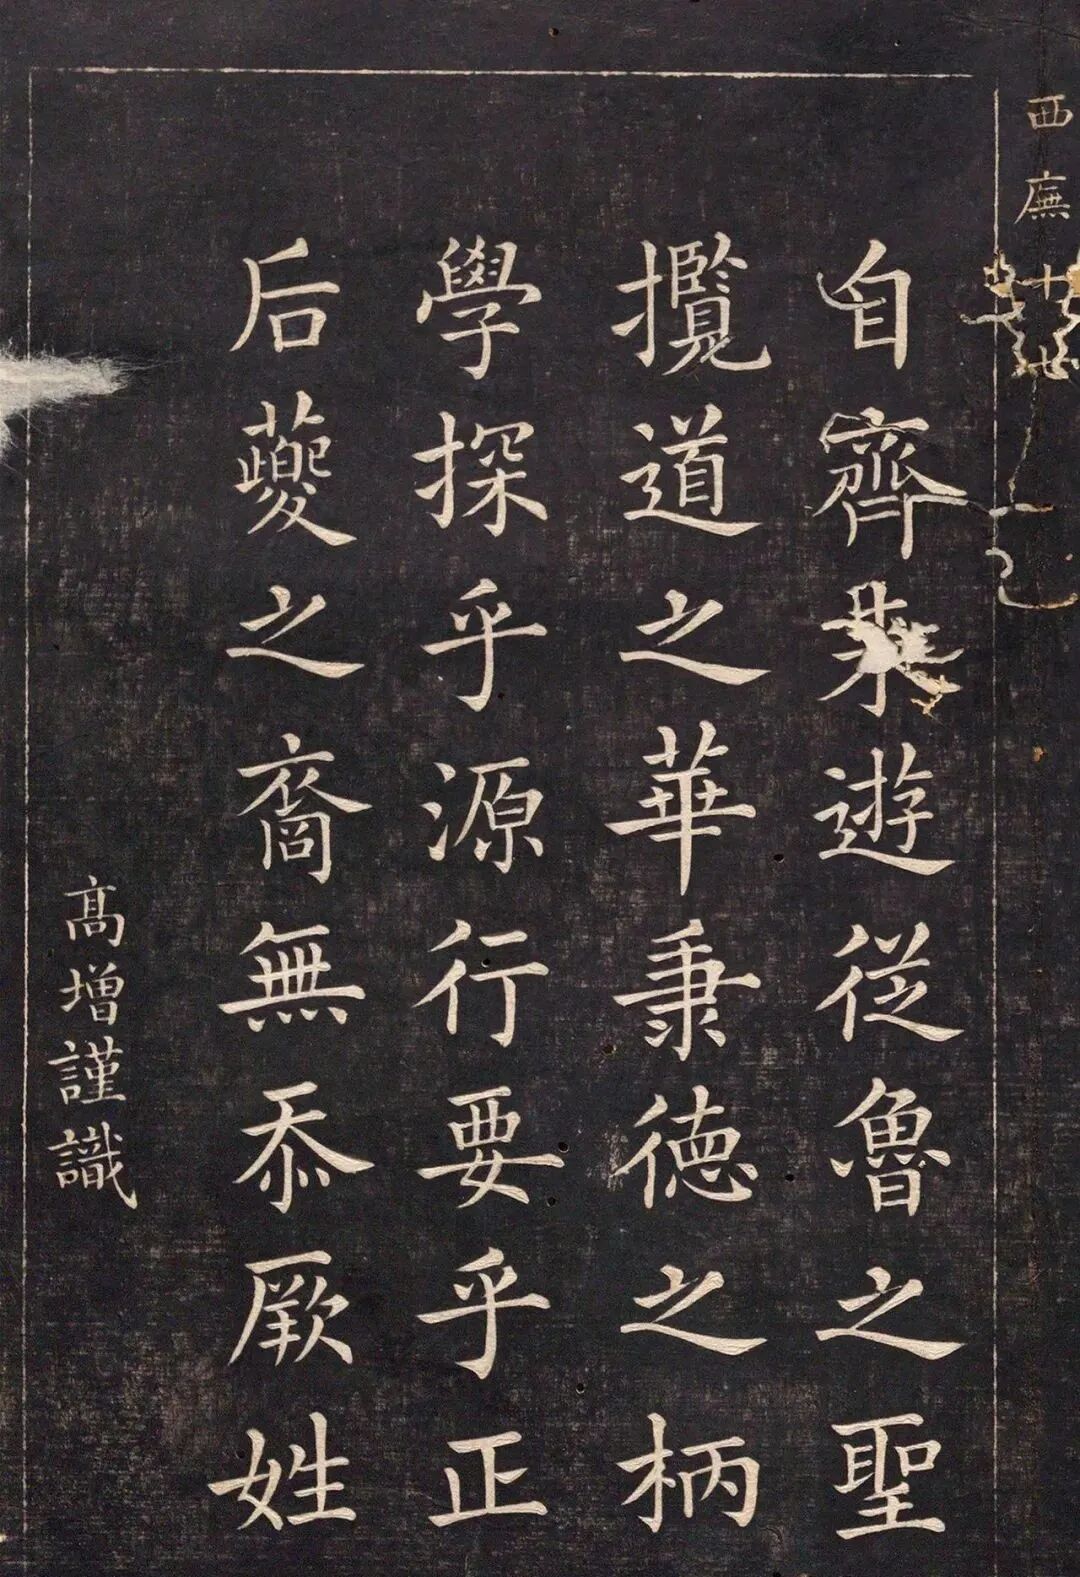 西廡十
自齊来遊從魯之聖
攬道之華秉德之柄
學探乎源行要乎正
后夔之裔無忝厥姓
高增謹識